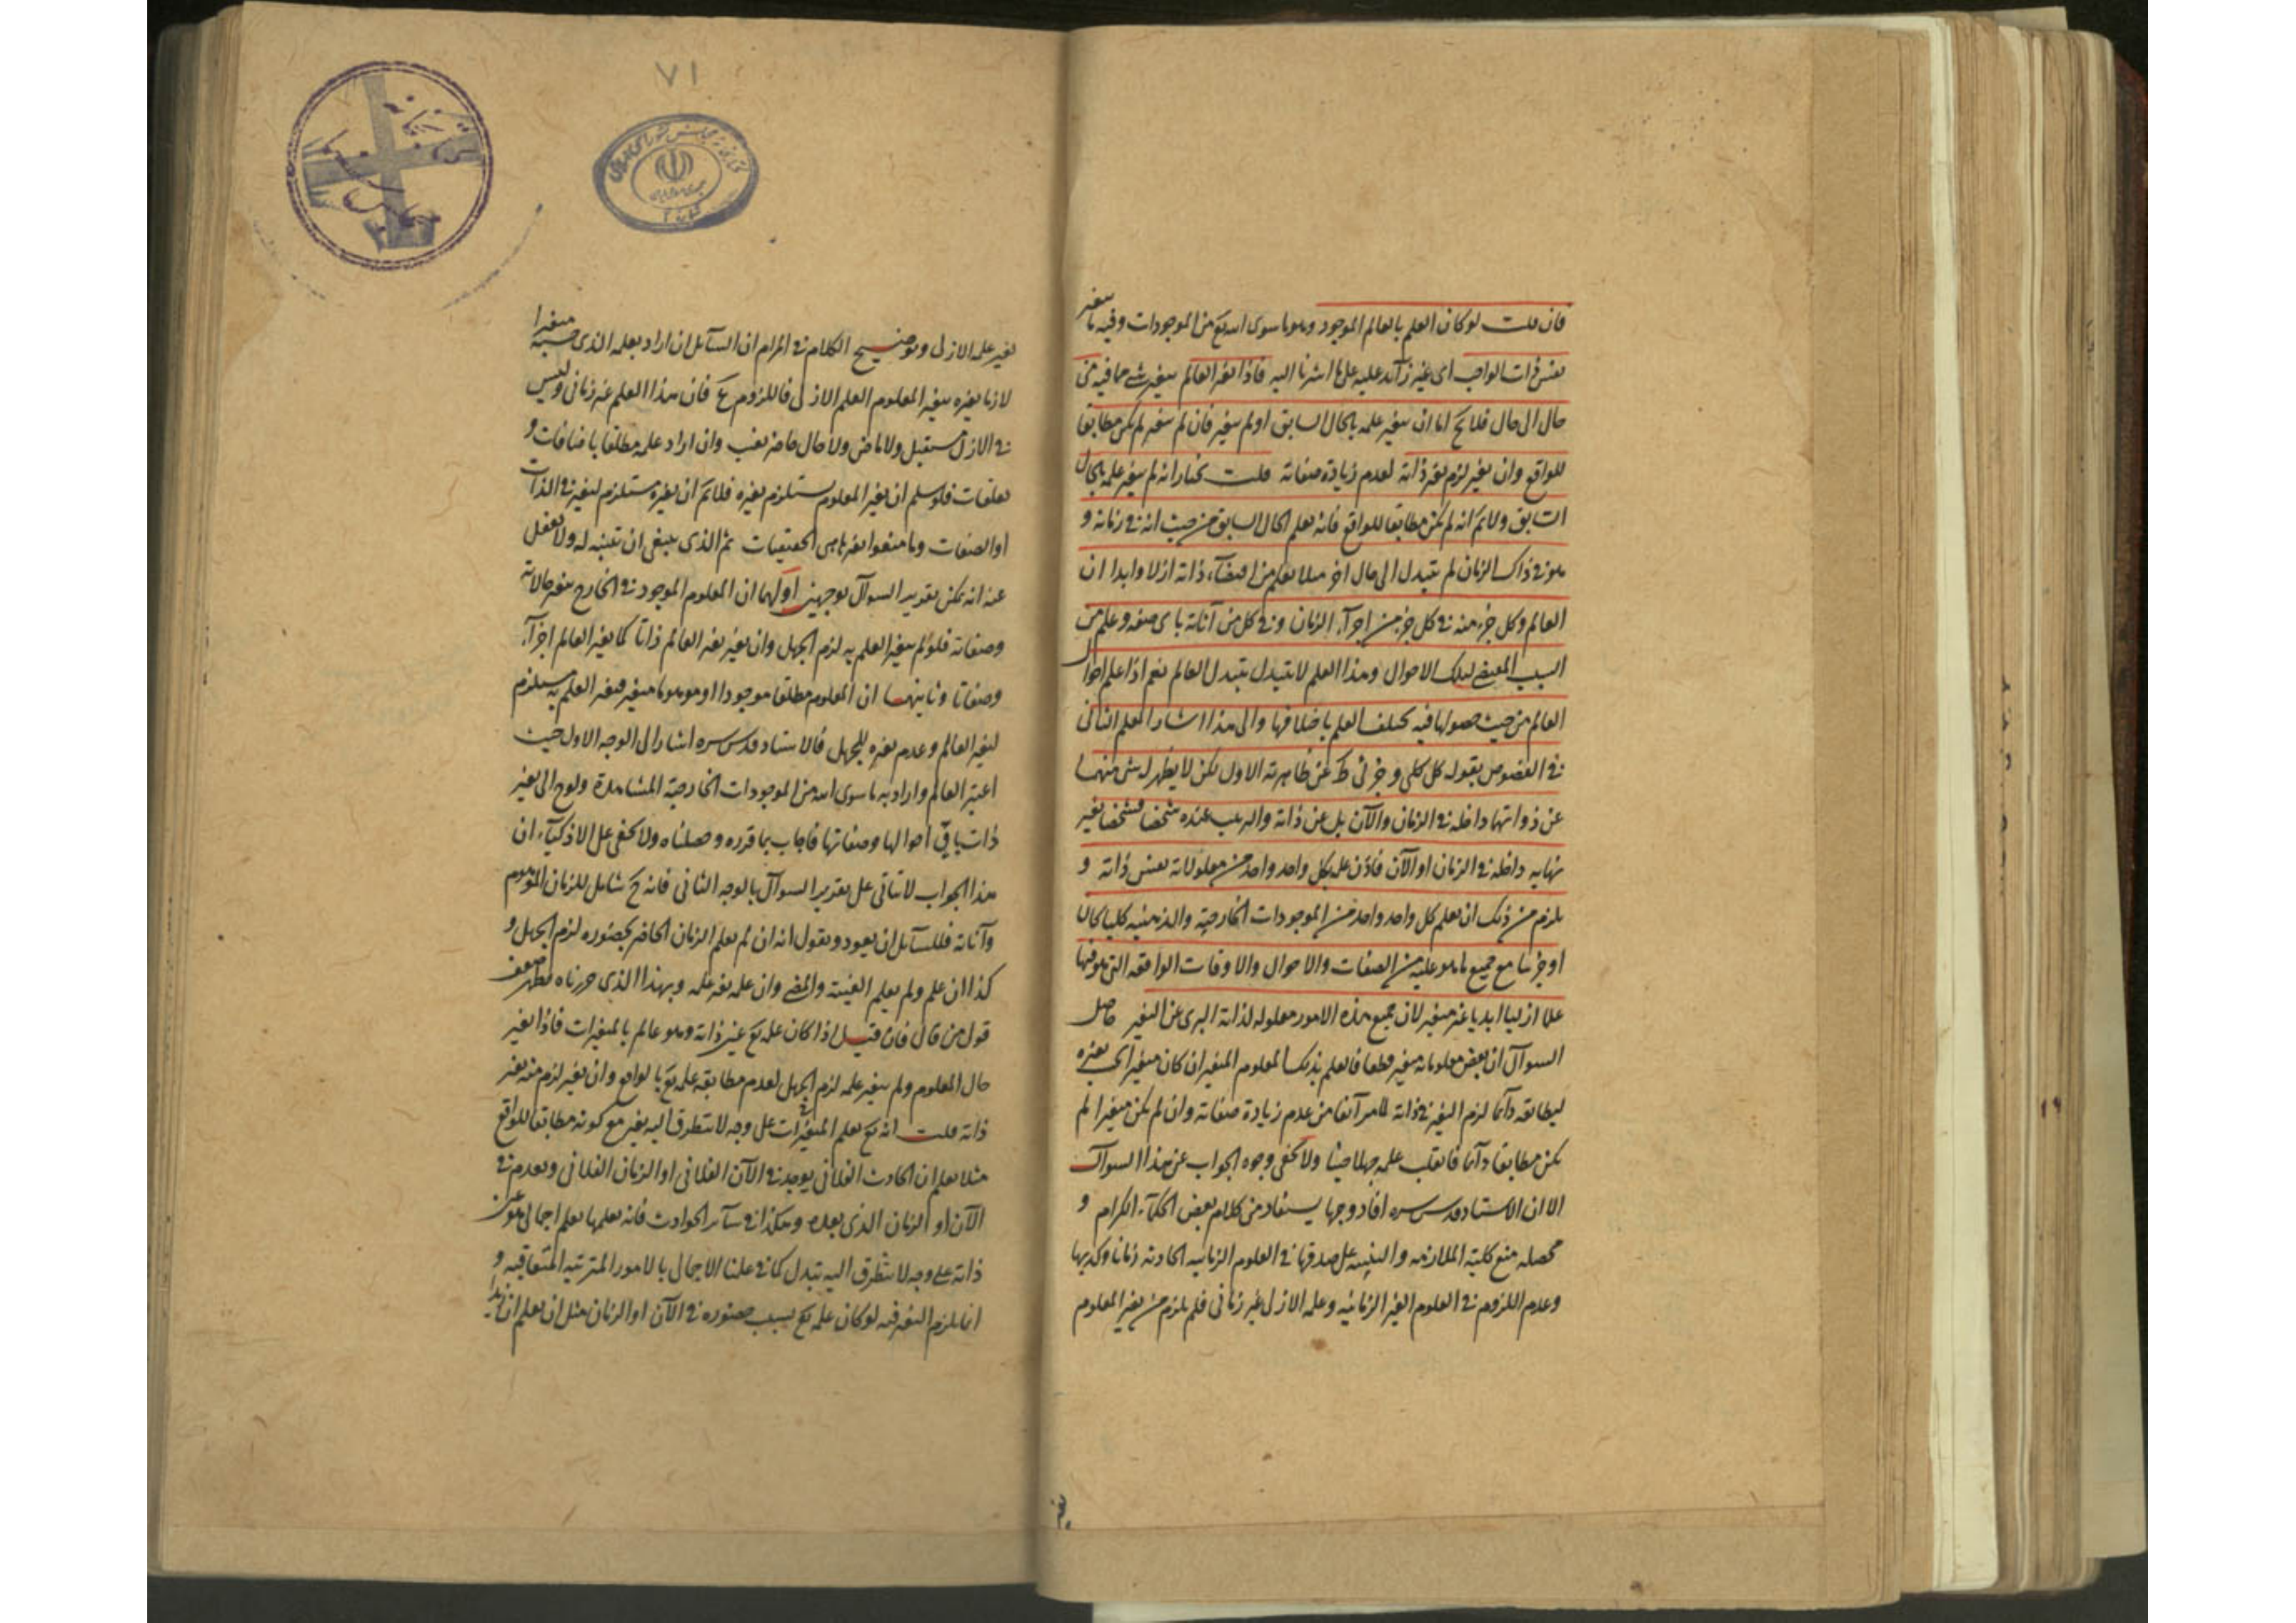 فان قلت لو كان العلم بالعالم الموجود وهو ما سوى الله تع من الموجودات وفيه ما يتغير
نفس ذات الواجب اى غير زائد عليه على ما اشرنا اليه فاذا تغير العالم بتغير شئ مما فيه من
حال الى حال فلا يخ اما ان يتغير علمه بالحال السابق او لم يتغير فان لم يتغير لم يكن مطابقا
للواقع وان تغير لزم تغير ذاته لعدم زيادة صفاته قلت نختار انه لم يتغير علمه بالحال
السابق ولا نم انه لم يكن مطابقا للواقع فانه يعلم الحال السابق من حيث انه فى زمانه و
هو فى ذاك الزمان لم يتبدل الى حال اخر مثلا يعلم من اقتضاء ذاته ازلا وابدا ان
العالم وكل جزء منه فى كل جزء من اجزاء الزمان وفى كل من آناته باى صفة وعلم من
السبب المقتضى لتلك الاحوال وهذا العلم لا يتبدل بتبدل العالم نعم اذا علم احوال
العالم من حيث حصولها فيه يختلف العلم باختلافها والى هذا اشار المعلم الثانى
فى الفصوص بقوله كل كلى وجزئى ظ عن ظاهريته الاول لكن لا يظهر له شئ منهما
عن ذواتها داخلة فى الزمان والآن بل عن ذاته والترتيب عنده شخصا فشخصا بغير
نهاية داخلة فى الزمان او الآن فاذن علمه بكل واحد واحد من معلولاته نفس ذاته و
يلزم من ذلك ان يعلم كل واحد واحد من الموجودات الخارجية والذهنية كليا كان
او جزئيا مع جميع ما هو عليه من الصفات والاحوال والاوقات الواقعة التى هو فيها
علما ازليا ابديا غير متغير لان جميع هذه الامور معلولة لذاته البرى عن التغير حاصل
السوآل ان بعض معلوماته متغير قطعا فالعلم بذلك المعلوم المتغير ان كان متغيرا بتغيره
ليطابقه دآئما لزم التغير فى ذاته لما مر آنفا من عدم زيادة صفاته وان لم يكن متغيرا لم
يكن مطابقا دآئما فانقلب علمه جهلا حينئذ ولا يخفى وجوه الجواب عن هذا السوآل
الا ان الاستاد قدس سره افاد وجها يستفاد من كلام بعض الحكمآء الكرام و
محصله منع كلية الملازمة والتنبيه على صدقها فى العلوم الزمانية الحادثة زمانا وكذبها
وعدم اللزوم فى العلوم الغير الزمانية وعلمه الازلى غير زمانى فلم يلزم من تغير المعلوم
٧١
تغير علمه الازلى وتوضيح الكلام فى المرام ان السآئل ان اراد بعلمه الذى حسبه متغيرا
لازما تغيره بتغير المعلوم العلم الازلى فاللزوم مم فان هذا العلم غير زمانى وليس
فى الازل مستقبل ولا ماض ولا حال وان اراد علمه مطلقا باضافات و
تعلقات فلو سلم ان تغير المعلوم يستلزم تغيره فلا نم ان تغيره مستلزم لتغير فى الذات
او الصفات وما منعوا تغيره هى الحقيقيات ثم الذى ينبغى ان تتنبه له ولا تغفل
عنه انه يمكن تقرير السوآل بوجهين اولهما ان المعلوم الموجود فى الخارج متغير حالاته
وصفاته فلو لم يتغير العلم به لزم الجهل وان تغير تغير العالم ذاتا كما تغير العالم اجزآء
وصفاتا وثانيهما ان المعلوم مطلقا موجودا او موهوما متغير فتغير العلم به يستلزم
لتغير العالم وعدم تغيره للجهل فالاستاد قدس سره اشار الى الوجه الاول حيث
اعتبر العالم واراد به ما سوى الله من الموجودات الخارجية المشاهدة ولوح الى تغير
ذات باقى احوالها وصفاتها فاجاب بما قرره وفصلناه ولا يخفى على الاذكيآء ان
هذا الجواب لا يتأتى على تقرير السوآل بالوجه الثانى فانه ح شامل للزمان الموهوم
وآناته فللسآئل ان يعود ويقول انه ان لم يعلم الزمان الحاضر بحضوره لزم الجهل و
كذا ان علم ولم يعلم الغيبة والمضى وان علمه تغير علمه وبهذا الذى حررناه يظهر ضعف
قول من قال فان قيل اذا كان علمه تع عين ذاته وهو عالم بالمتغيرات فاذا تغير
حال المعلوم ولم يتغير علمه لزم الجهل لعدم مطابقة علمه تع بالواقع وان تغير لزم منه تغير
ذاته قلت انه تع يعلم المتغيرات على وجه لا يتطرق اليه تغير مع كونه مطابقا للواقع
مثلا يعلم ان الحادث الفلانى يوجد فى الآن الفلانى او الزمان الفلانى ويعدم فى
الآن او الزمان الذى بعده وهكذا فى سآئر الحوادث فانه يعلمها بعلم اجمالى هو عين
ذاته على وجه لا يتطرق اليه تبدل كما فى علمنا الاجمالى بالامور المترتبة المتعاقبة و
انما يلزم التغير فيه لو كان علمه تع بسبب حضوره فى الآن او الزمان مثل ان يعلم ان زيدا